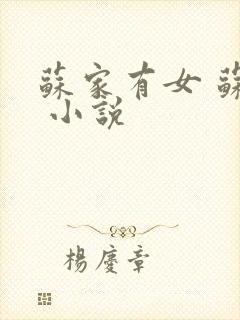 蘇家有女 蘇
小說
楊慶章